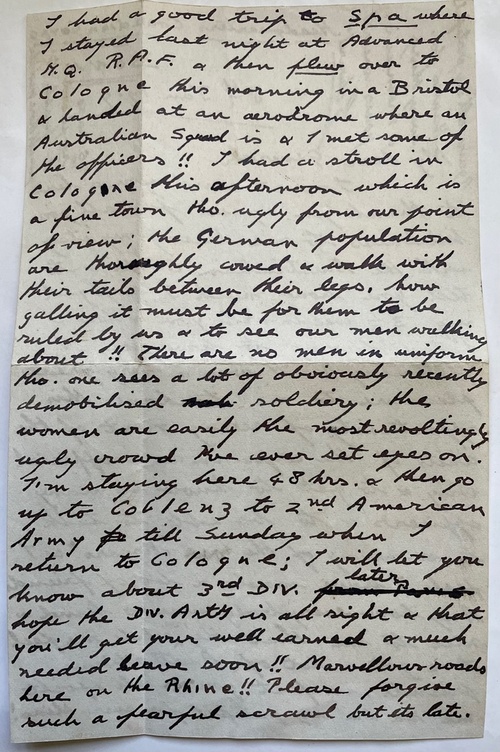 I had a good trip to Spa where
I stayed last night at Advanced
H.Q. R.A.F. & then flew over to
Cologne this morning in a Bristol
& landed at an aerodrome where an
Australian Squad is & I met some of
the officers !! I had a stroll in
Cologne this afternoon which is
a fine town tho. ugly from our point
of view; the German population
are thoroughly cowed & walk with
their tails between their legs. how
galling it must be for them to be
ruled by us & to see our men walking
about !! There are no men in uniform
tho. one sees a lot of obviously recently
demobilised soldiery; the
women are easily the most revoltingly
ugly crowd I've ever set eyes on.
I'm staying here 48 hrs. & then go
up to Coblenz to 2nd American
Army till Sunday when I
return to Cologne; I will let you
know about 3rd DIV. later
hope the DIV. Arty is all right & that
you'll get your well earned & much
needed leave soon !! Marvellous roads
here on the Rhine !! Please forgive
such a fearful scrawl but its late.